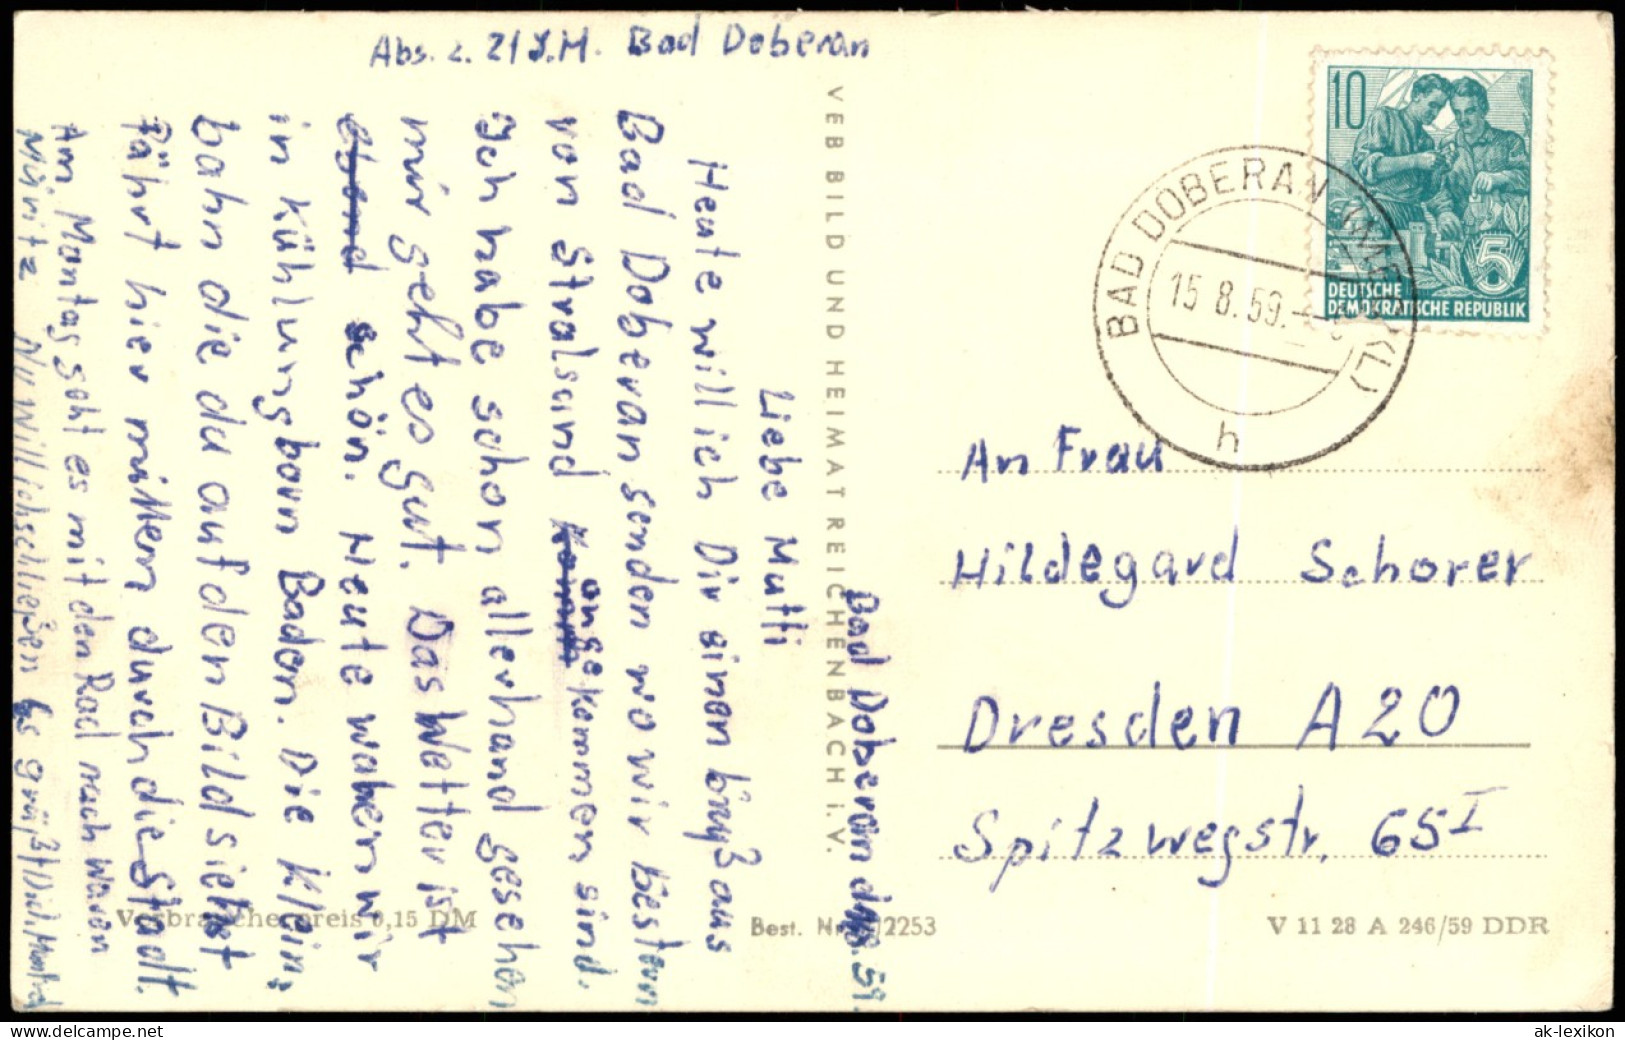 Abs. z. Zt J.H. Bad Doberan
Bad Doberan d. 59.
Liebe Mutti
Heute will ich Dir einen Gruß aus
Bad Doberan senden wo wir gestern
von Stralsund angekommen sind.
Ich habe schon allerhand gesehen
mir geht es gut. Das Wetter ist
schön. Heute waren wir
in Kühlungborn Baden. Die Klein,
bahn die du auf den Bild siehst
Fährt hier mitten durch die Stadt.
Am Montag geht es mit den Rad nach Waren
Müritz Nu will ich schließen Es grüßt Dich
VEB BILD UND HEIMAT REICHENBACH i.V.
10
5
DEUTSCHE
DEMOKRATISCHE REPUBLIK
BAD DOBERAN (MECKL)
15.8.59.
h
An Frau
Hildegard Schorer
Dresden A 20
Spitzwegstr. 65 I
Verbraucherpreis 0,15 DM
Best. Nr. 2253
V 11 28 A 246/59 DDR
ak-lexikon